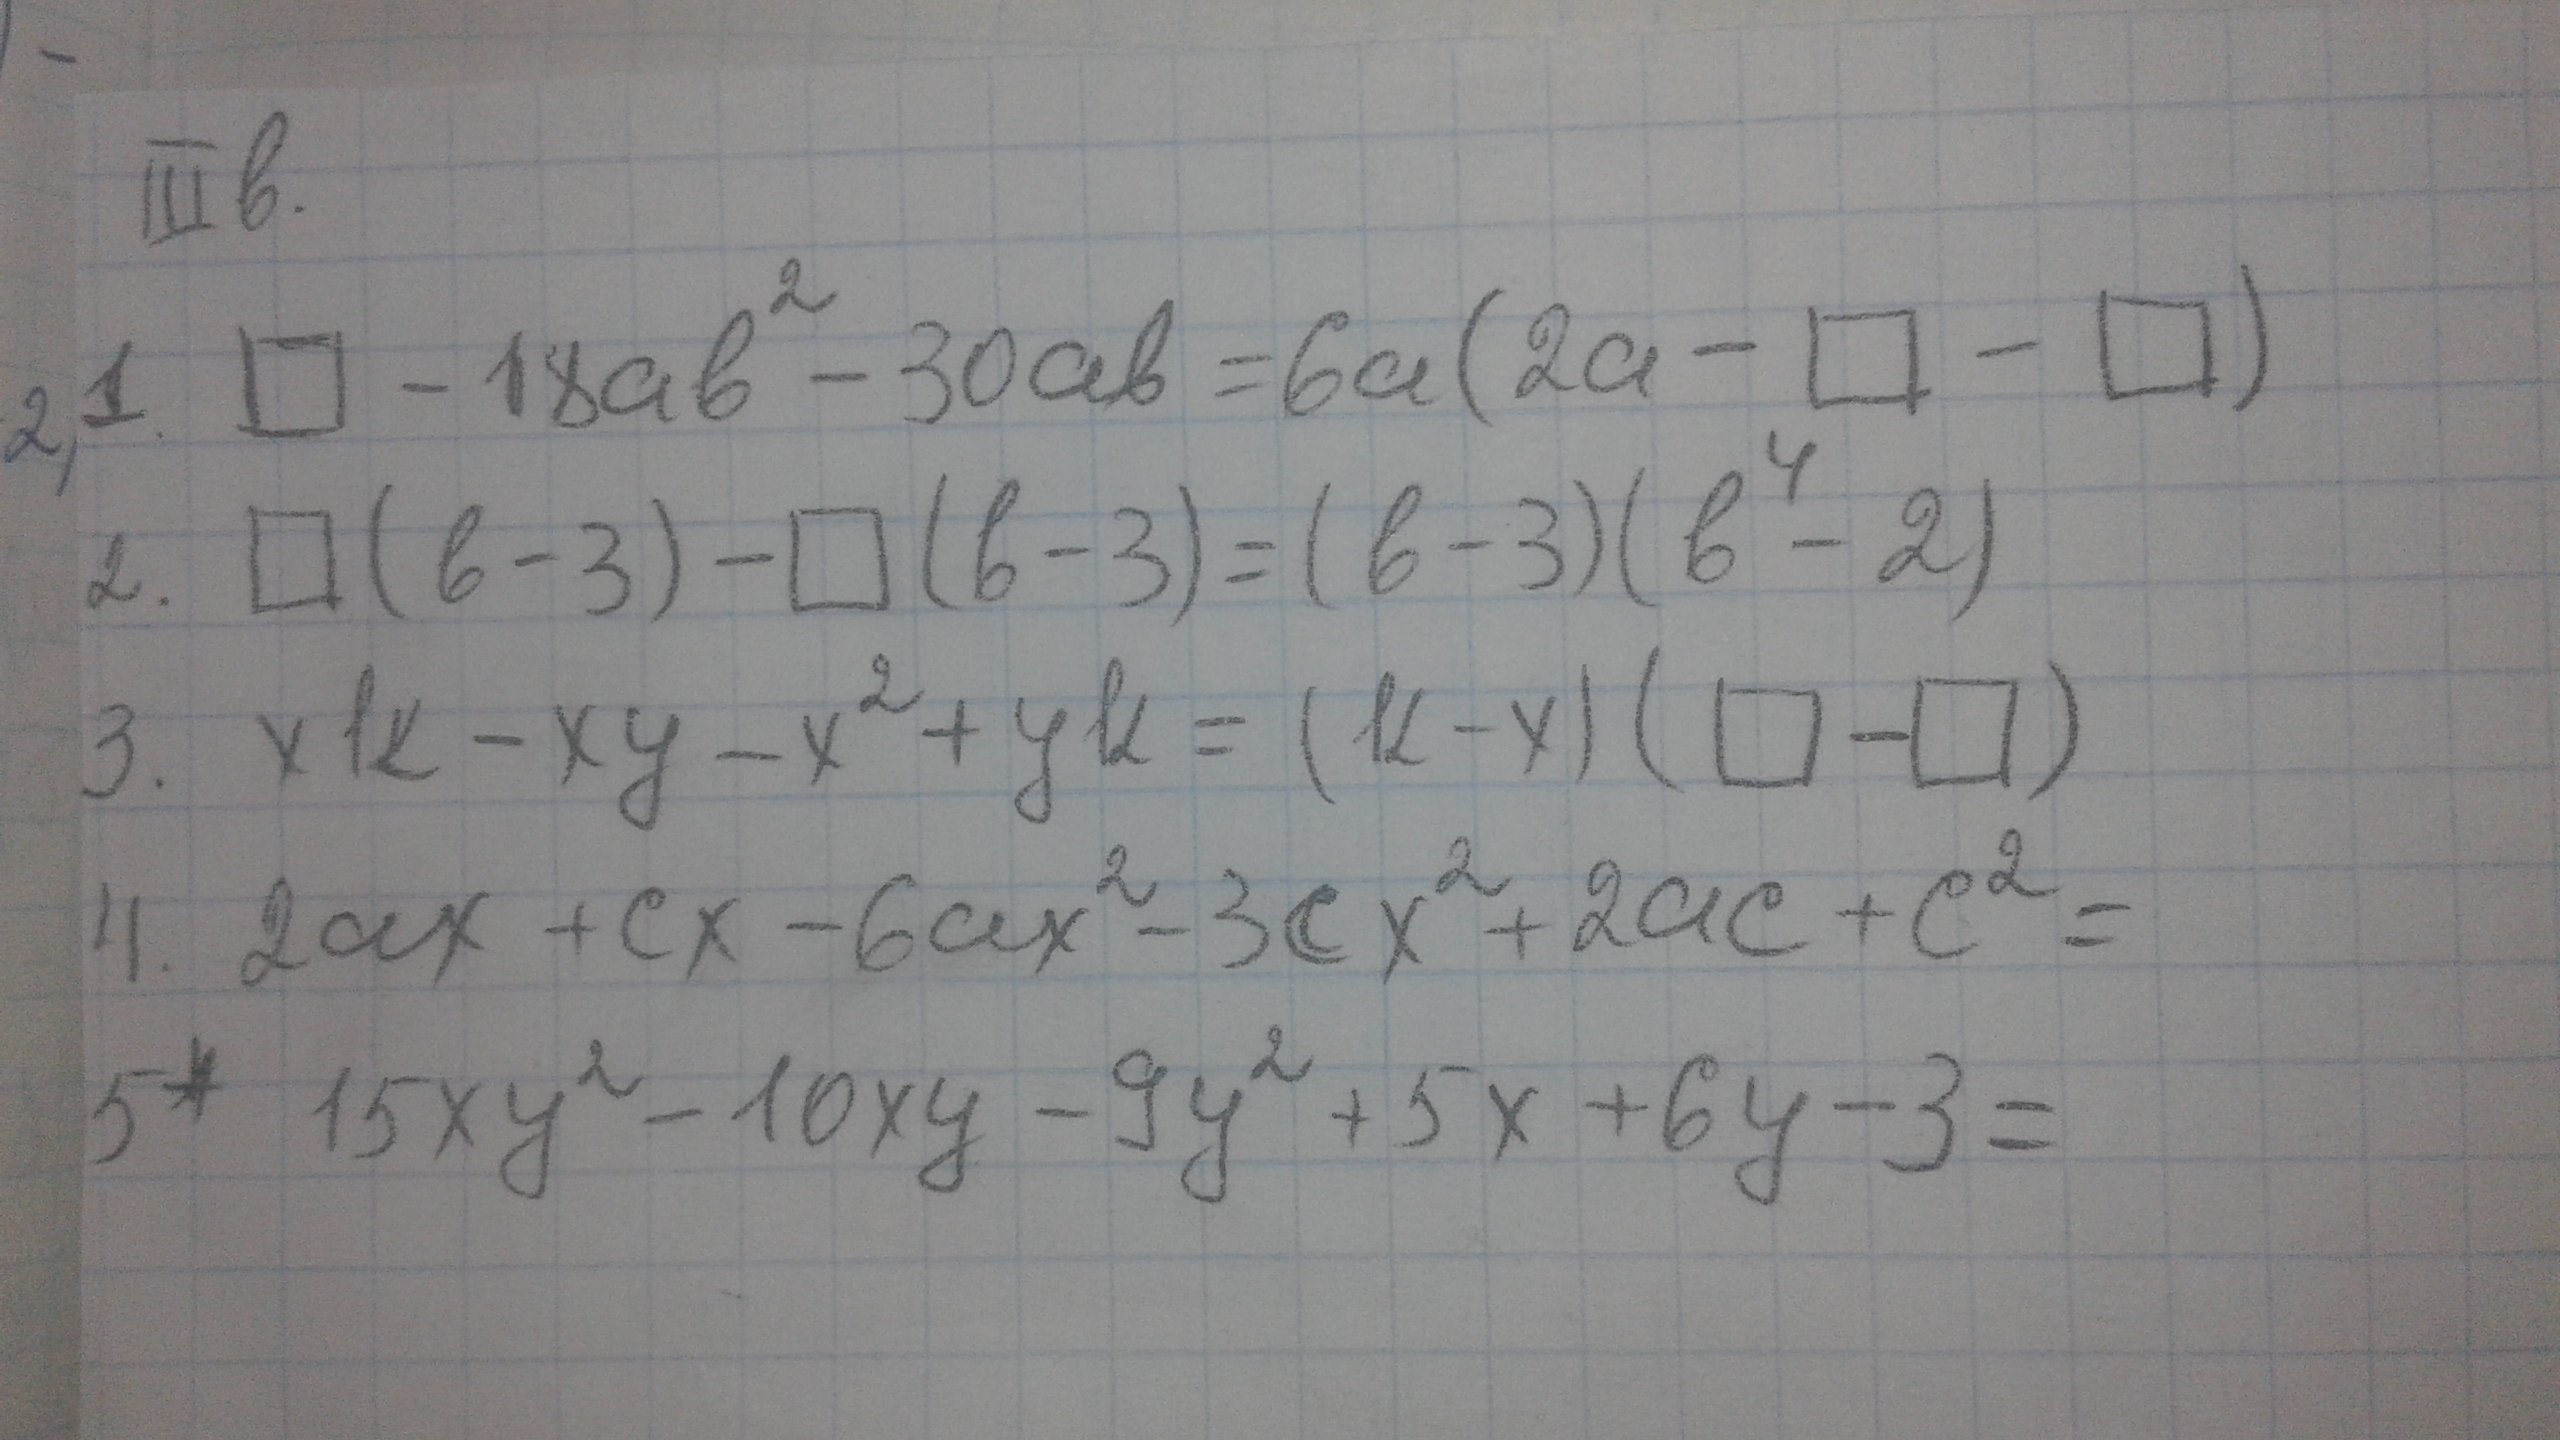 III в.
2, 1. □ - 18ab² - 30ab = 6a(2a - □ - □)
2. □(b - 3) - □(b - 3) = (b - 3)(b⁴ - 2)
3. xk - xy - x² + yk = (k - x)(□ - □)
4. 2ax + cx - 6ax² - 3cx² + 2ac + c² =
5* 15xy² - 10xy - 9y² + 5x + 6y - 3 =